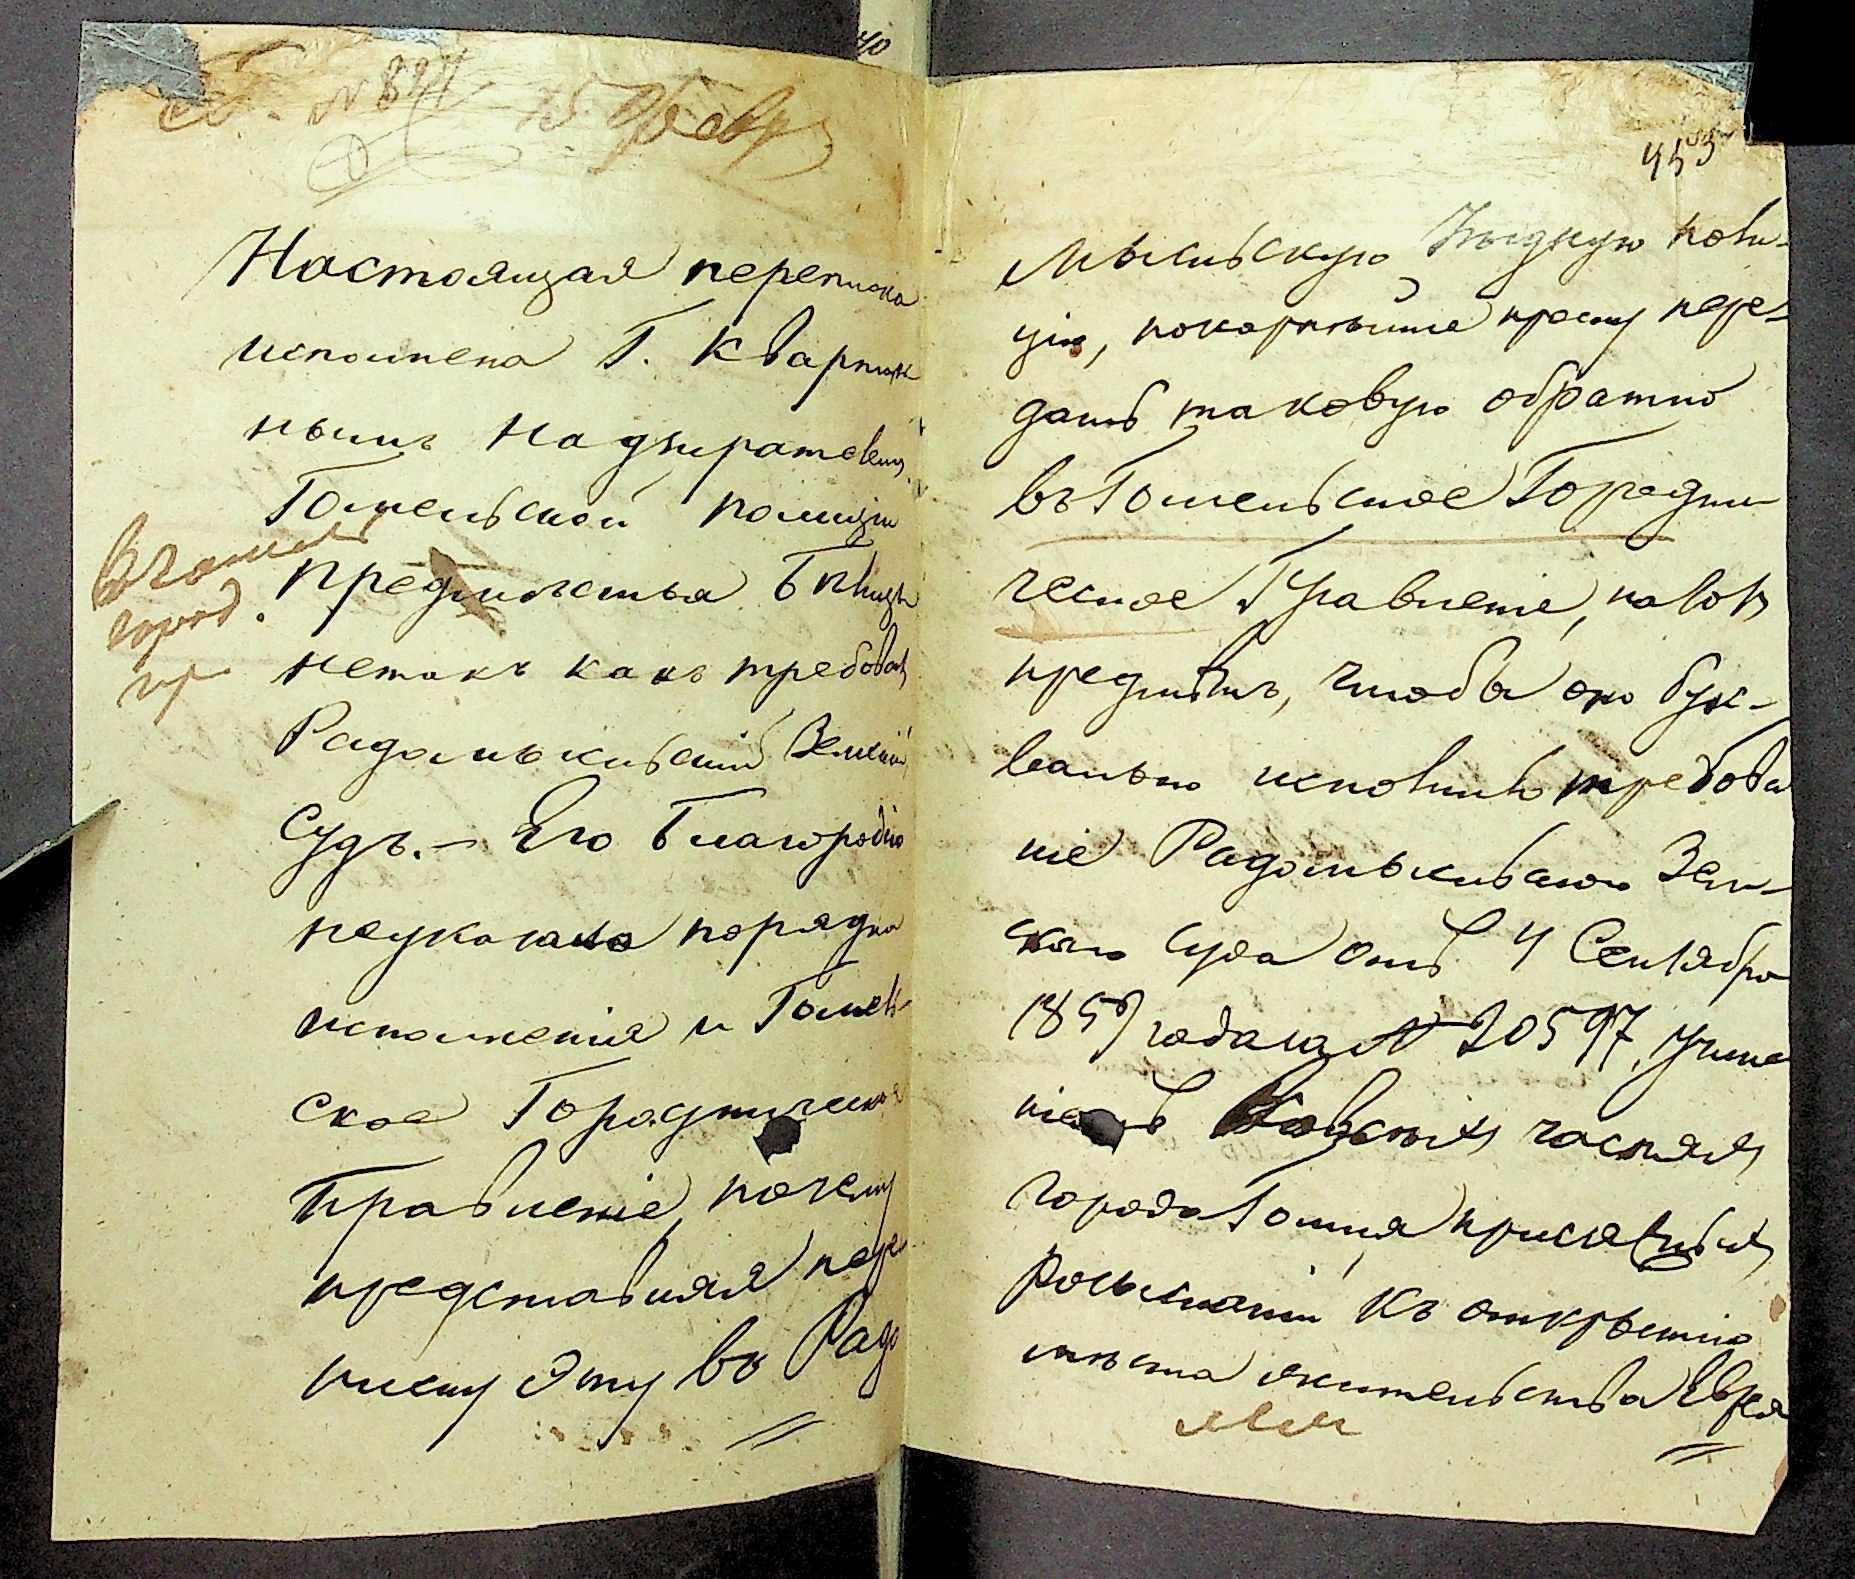 № 824
15 Февр
Настоящая переписка
исполнена Г. Квартал
нымъ Надзирателемъ
Гомельской полиціи
В Гомел
город.
пр
нетакъ какъ требовалъ
Радомысльскій Земскій
Судъ. – Его Благородію
неуказала порядка
исполненія и Гомель-
ское Городническое
Правленіе, почему
представляя пере
писку эту въ Радо
453
мысльскую Уѣздную поли-
цію, покорнѣйше прошу пере-
дать таковую обратно
въ Гомельское Городни-
ческое Правленіе, на
предметъ, чтобы оно бук-
вально исполнило требова
ніе Радомысльскаго Зем-
скаго Суда отъ 4 Сентября
185 года за № 20597, Учине
ніемъ во всѣхъ частяхъ
города Гомля присяжныхъ
розысканій къ открытію
мѣста жительства Еврея